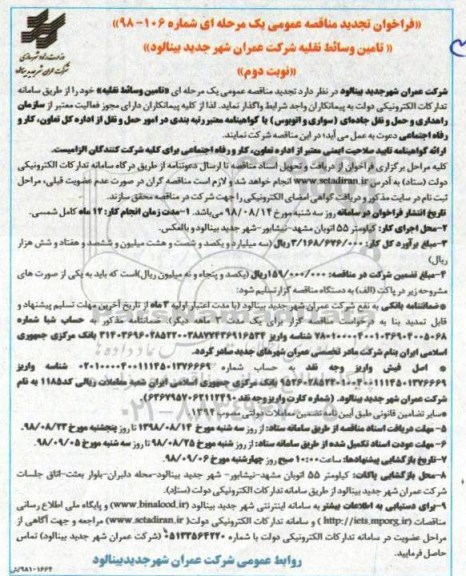 «فراخوان تجدید مناقصه عمومی یک مرحله ای شماره ۱۰۶-۹۸»
«تامین وسائط نقلیه شرکت عمران شهر جدید بینالود»
«نوبت دوم»
شرکت عمران شهرجدید بینالود در نظر دارد تجدید مناقصه عمومی یک مرحله ای «تامین وسائط نقلیه» خود را از طریق سامانه
تدارکات الکترونیکی دولت به پیمانکاران واجد شرایط واگذار نماید. لذا از کلیه پیمانکاران دارای مجوز فعالیت معتبر از سازمان
راهداری و حمل و نقل جاده‌ای (سواری و اتوبوس) یا گواهینامه معتبر رتبه بندی در امور حمل و نقل از اداره کل تعاون، کار و
رفاه اجتماعی دعوت به عمل می آید؛ در این مناقصه شرکت نمایند.
ارائه گواهینامه تایید صلاحیت ایمنی معتبر از اداره تعاون، کار و رفاه اجتماعی برای کلیه شرکت کنندگان الزامیست.
کلیه مراحل برگزاری فراخوان از دریافت و تحویل اسناد مناقصه تا ارسال دعوتنامه از طریق درگاه سامانه تدارکات الکترونیکی
دولت (ستاد) به آدرس www.setadiran.ir انجام خواهد شد و لازم است مناقصه گران در صورت عدم عضویت قبلی، مراحل
ثبت نام در سایت مذکور و دریافت گواهی امضای الکترونیکی را جهت شرکت در مناقصه محقق سازند.
تاریخ انتشار فراخوان در سامانه روز سه شنبه مورخ ۹۸/۰۸/۱۴ می‌باشد. ۱-مدت زمان انجام کار: ۱۲ ماه کامل شمسی.
۲-محل اجرای کار: کیلومتر ۵۵ اتوبان مشهد-نیشابور-شهر جدید بینالود و بالعکس.
۳-مبلغ برآورد کل کار: ۳/۱۶۸/۶۷۶/۰۰۰ ریال (سه میلیارد و یکصد و شصت و هشت میلیون و ششصد و هفتاد و شش هزار
ریال)
۴-مبلغ تضمین شرکت در مناقصه: ۱۵۹/۰۰۰/۰۰۰ ریال (یکصد و پنجاه و نه میلیون ریال) است که باید به یکی از صورت های
مشروحه زیر در پاکت (الف) به دستگاه مناقصه گزار تسلیم شود:
*ضمانتنامه بانکی به نفع شرکت عمران شهر جدید بینالود (با مدت اعتبار اولیه ۳ ماه از تاریخ آخرین مهلت تسلیم پیشنهاد و
قابل تمدید بنا به درخواست مناقصه گزار برای یک مدت ۳ ماهه دیگر). ضمانتنامه مذکور به حساب شبا شماره
شناسه واریز بانک مرکزی جمهوری
اسلامی ایران بنام شرکت مادر تخصصی عمران شهرهای جدید صادر گردد.
* اصل فیش واریز وجه نقد به حساب شماره شناسه واریز
بانک مرکزی جمهوری اسلامی ایران شعبه معاملات ریالی کد ۱۱۸۵ به نام
شرکت عمران شهر جدید بینالود. (شماره کارت واریز وجه نقد )
*سایر تضامین قانونی طبق آیین نامه تضمین معاملات دولتی مصوب ۱۳۹۴.
۵-مهلت دریافت اسناد مناقصه از طریق سامانه ستاد: از روز سه شنبه مورخ ۱۳۹۸/۰۸/۱۴ تا روز پنجشنبه مورخ ۹۸/۰۸/۲۳.
۶-مهلت عودت اسناد تکمیل شده از طریق سامانه ستاد: از روز شنبه مورخ ۹۸/۰۸/۲۵ تا روز سه شنبه مورخ ۹۸/۰۹/۰۵.
۷-تاریخ بازگشایی پیشنهادها: ساعت ۱۰:۰۰ صبح روز چهارشنبه مورخ ۹۸/۰۹/۰۶
۸-محل بازگشایی پاکات: کیلومتر ۵۵ اتوبان مشهد-نیشابور- شهر جدید بینالود-محله دلبران-بلوار بعثت-اتاق جلسات
شرکت عمران شهر جدید بینالود از طریق سامانه تدارکات الکترونیکی دولت (ستاد).
۹-برای دستیابی به اطلاعات بیشتر به سامانه اینترنتی شهر جدید بینالود (www.binalood.ir) و پایگاه ملی اطلاع رسانی
مناقصات (http://iets.mporg.ir) و سامانه تدارکات الکترونیکی دولت (www.setadiran.ir) مراجعه و جهت آگاهی از
مراحل عضویت در سامانه تدارکات الکترونیکی دولت با شماره ۰۵۱۳۳۵۶۴۲۲۰ (شرکت عمران شهر جدید بینالود) تماس
حاصل فرمایید.
روابط عمومی شرکت عمران شهرجدیدبینالود